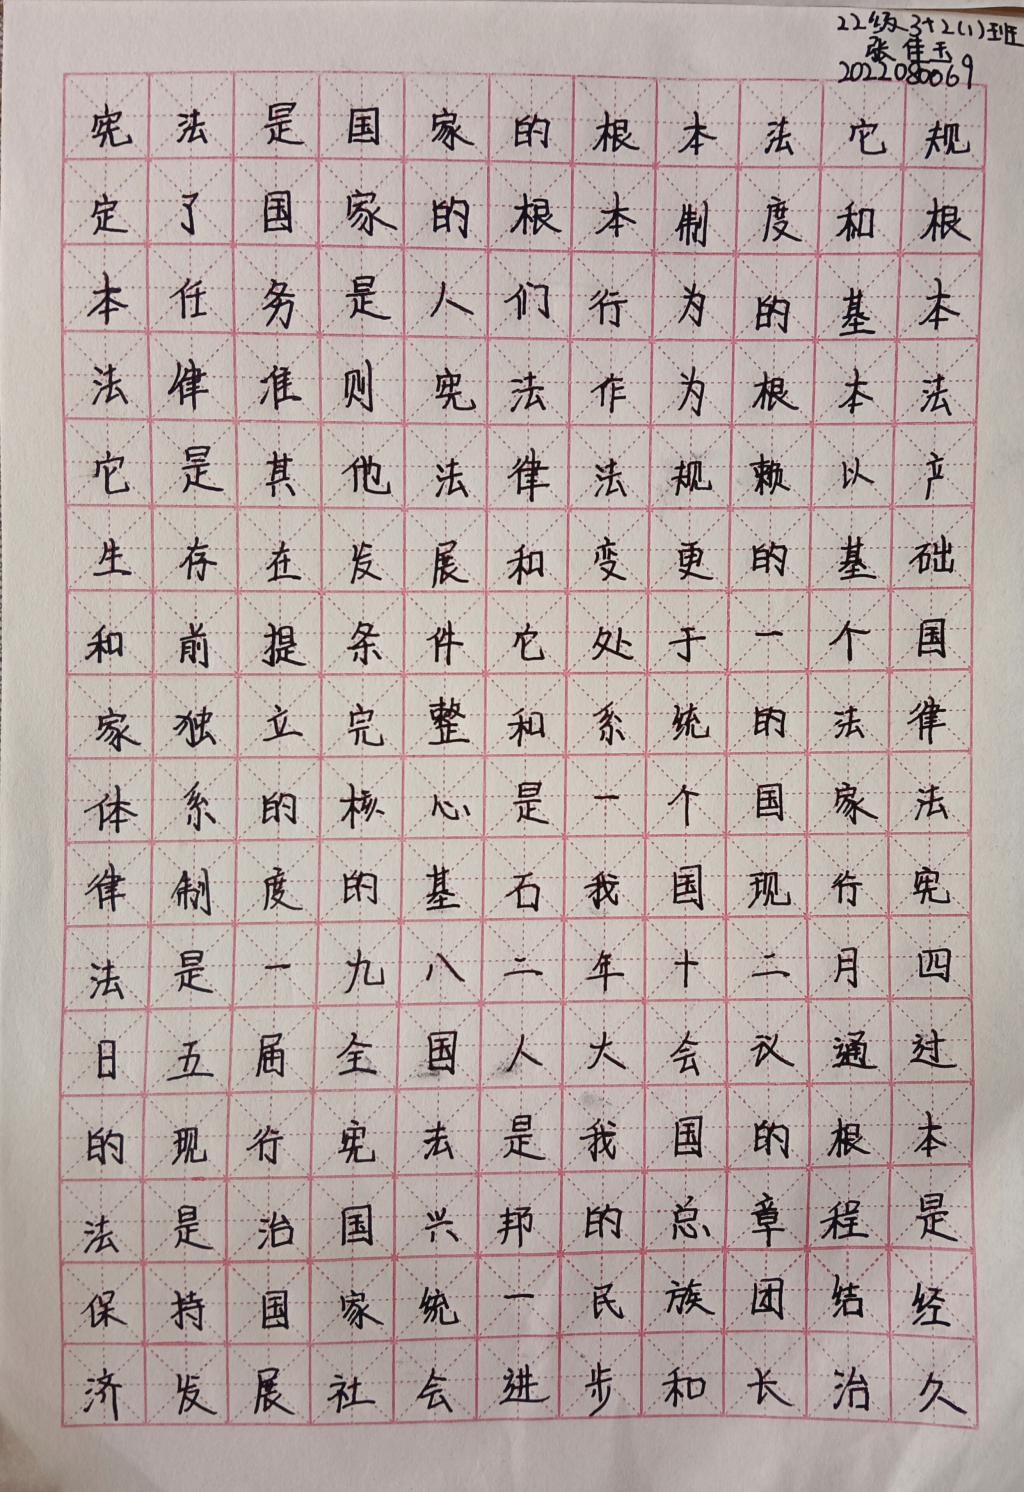 22级3+2(1)班
张佳玉
2022080069
宪法是国家的根本法它规
定了国家的根本制度和根
本任务是人们行为的基本
法律准则宪法作为根本法
它是其他法律法规赖以产
生存在发展和变更的基础
和前提条件它处于一个国
家独立完整和系统的法律
体系的核心是一个国家法
律制度的基石我国现行宪
法是一九八二年十二月四
日五届全国人大会议通过
的现行宪法是我国的根本
法是治国兴邦的总章程是
保持国家统一民族团结经
济发展社会进步和长治久